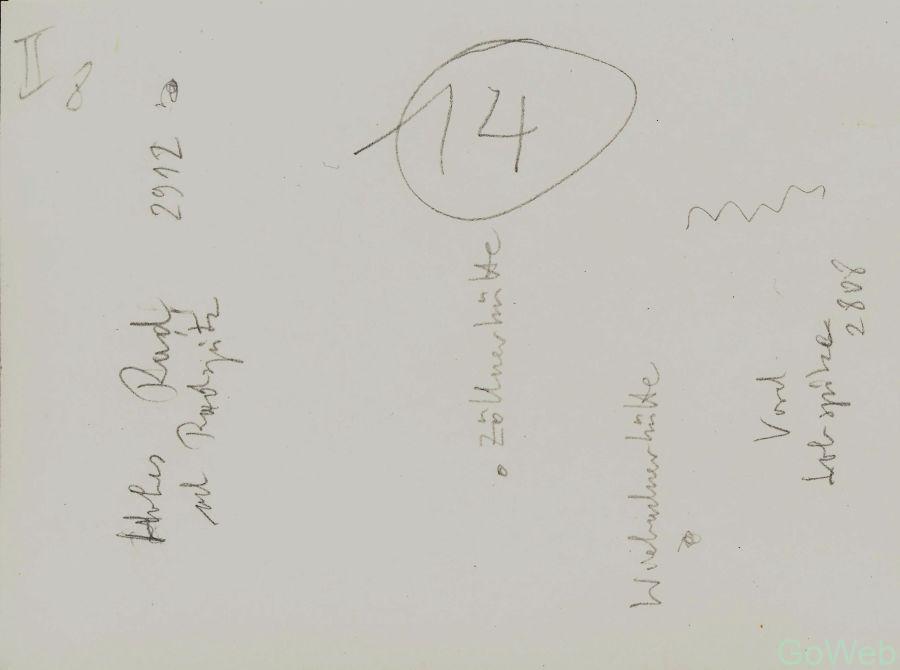 II
8
14
Hohes Rad 2912
Radspitz
Zöllnerhütte
Wiesbadnerhütte
Vord
Lobspitze
2808
GoWeb